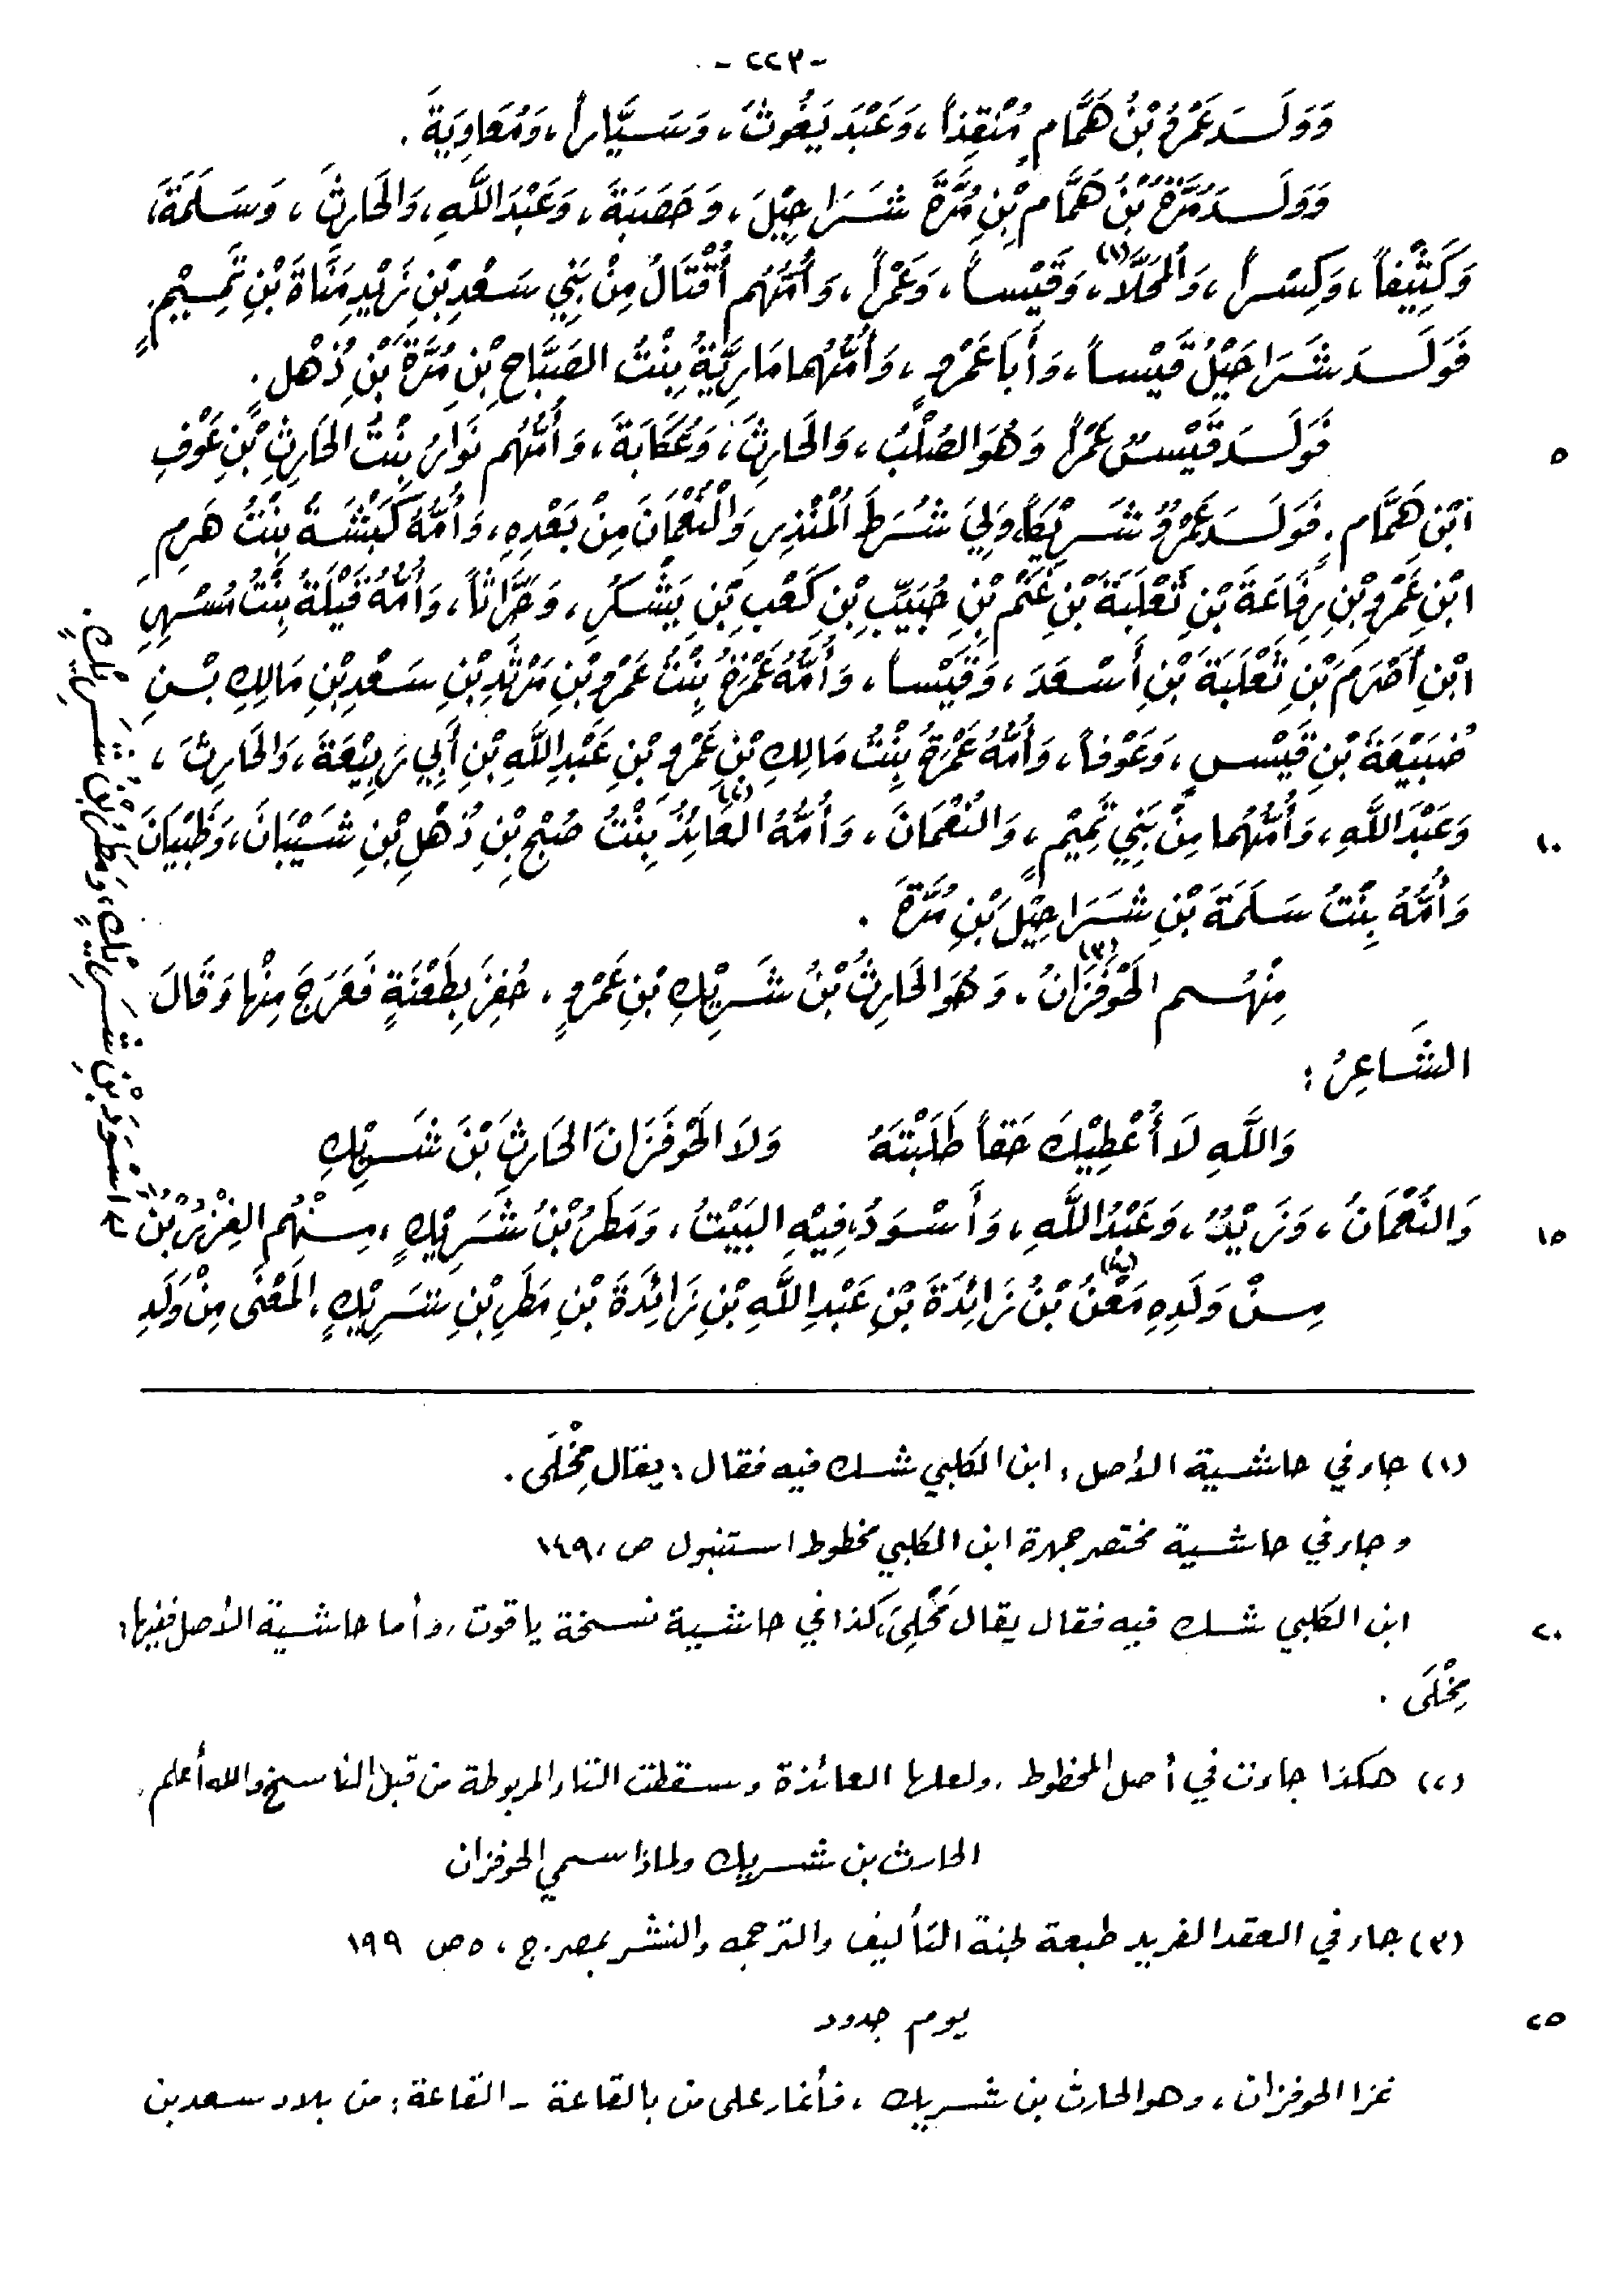 - ٢٢٣ -
وَوَلَــدَ عَمْرُو بْنُ هَمَّامٍ مُنْقِذاً، وَعَبْدَ يَغُوثَ، وَسَيَّاراً، وَمُعَاوِيَةَ.
وَوَلَــدَ مُرَّةُ بْنُ هَمَّامِ بْنِ مُرَّةَ شَرَاحِيْلَ، وَحَصَبَةَ، وَعَبْدَ اللَّهِ، وَالحَارِثَ، وَسَلَمَةَ،
وَكَثِيْفاً، وَكِسْراً، وَالمُحَلَّا(١)، وَقَيْساً، وَعَمْراً، وَأُمُّهُم أُقْتَالُ مِنْ بَنِي سَعْدِ بْنِ زَيْدِ مَنَاةَ بْنِ تَمِيْمٍ.
فَوَلَــدَ شَرَاحَيْلُ قَيْساً، وَأَبَا عَمْرٍو، وَأُمُّهُما مَارِيَّةُ بِنْتُ الصَبَّاحِ بْنِ مُرَّةَ بْنِ ذُهْلٍ.
فَوَلَــدَ قَيْسُ عَمْراً وَهُوَ الصُلْبُ، وَالحَارِثَ، وَعُكَابَةَ، وَأُمُّهُم نَوَارُ بِنْتُ الحَارِثِ بْنِ عَوْفِ
٥
ابْنِ هَمَّامٍ. فَوَلَــدَ عَمْرُو شَرِيْكاً، وَلِيَ شُرَطَ المُنْذِرِ وَالنُّعْمَانَ مِنْ بَعْدِهِ، وَأُمُّهُ كَبْشَةُ بِنْتُ هَرِمِ
ابْنِ عَمْرِو بْنِ رِفَاعَةَ بْنِ ثَعْلَبَةَ بْنِ غَنْمِ بْنِ حُبَيِّبِ بْنِ كَعْبِ بْنِ يَشْكُرِ، وَحَرَّاثاً، وَأُمُّهُ قَيْلَةُ بِنْتُ مُسْهِرِ
ابْنِ أَصْرَمَ بْنِ ثَعْلَبَةَ بْنِ أَسْعَدَ، وَقَيْساً، وَأُمُّهُ عَمْرَةُ بِنْتُ عَمْرِو بْنِ مَرْثَدِ بْنِ سَعْدِ بْنِ مَالِكِ بْـنِ
ضُبَيْعَةَ بْنِ قَيْسٍ، وَعَوْفاً، وَأُمُّهُ عَمْرَةُ بِنْتُ مَالِكِ بْنِ عَمْرِو بْنِ عَبْدِ اللَّهِ بْنِ أَبِي رَبِيْعَةَ، وَالحَارِثَ،
وَعَبْدَ اللَّهِ، وَأُمُّهُما مِنْ بَنِي تَمِيْمٍ، وَالنُعْمَانَ، وَأُمُّهُ العَائِذُ(٢) بِنْتُ صُبْحِ بْنِ ذُهْلِ بْنِ شَيْبَانَ، وَظَبْيَانَ
١٠
وَأُمُّهُ بِنْتُ سَلَمَةَ بْنِ شَرَاحِيْلَ بْنِ مُرَّةَ.
مِنْهُــم الحَوْفَزَانُ(٣)، وَهُوَ الحَارِثُ بْنُ شَرِيْكِ بْنِ عَمْرٍو، حُفِزَ بِطَعْنَةٍ فَعَرَجَ مِنْها وَقَالَ
الشَاعِرُ:
وَاللَّهِ لَا أُعْطِيْكَ حَقاً طَلَبْتَهُ وَلاَ الحَوْفَزَانَ الحَارِثَ بْنَ شَرِيْكِ
وَالنُّعْمَانُ، وَزَيْدُ، وَعَبْدُ اللَّهِ، وَأَسْوَدُ، فِيْهِ البَيْتُ، وَمَطَرُ بْنُ شَرَيْكٍ، مِنْهُم الغِزْرُ بْنُ
١٥
الأسْوَدِ بْنِ شَرِيْكٍ، وَمَطَرُ بْنُ شَرِيْكٍ.
مِــنْ وَلَدِهِ مَعْنُ(٤) بْنُ زَائِدَةَ بْنِ عَبْدِ اللَّهِ بْنِ زَائِدَةَ بْنِ مَطَرِ بْنِ شَرِيْكٍ، المَعْنَى مِنْ وَلَدِ
(١) جاء في حاشية الأصل: ابن الكلبي شك فيه فقال: يقال مِخْلَى.
وجاء في حاشية مختصر جمهرة ابن الكلبي مخطوط استنبول ص، ١٤٩
ابن الكلبي شك فيه فقال يقال مُحْلِىَ، كذا في حاشية نسخة ياقوت، وأما حاشية الأصل ففيها:
٢٠
مِخْلَى.
(٢) هكذا جاءت في أصل المخطوط، ولعلها العائذة وسقطت التاء المربوطة من قبل الناسخ والله أعلم.
الحارث بن شريك ولماذا سمي الحوفزان
(٣) جاء في العقد الفريد طبعة لجنة التأليف والترجمه والنشر بمصر. ج، ٥ ص ١٩٩
يوم جدود
٢٥
غزا الحوفزان، وهو الحارث بن شريك، فأغار على من بالقاعة - القاعة: من بلاد سعد بن